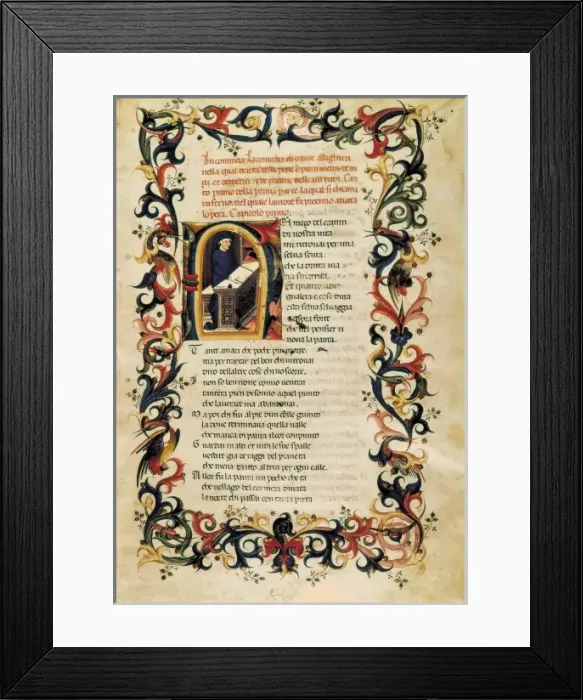 Incomincia la comedia di dante alleghieri
nella qual tratta delle pene
Can
to primo della prima parte la qual si chiama
inferno nel quale lautore fa prohemio a tutta
lopera. Capitolo primo.
Nel mezo del camin
di nostra vita
mi ritrovai per una
selva scura
che la dritta via
era smarrita
Et quanto a dir
qualera e cosa dura
esta selva selvaggia
aspra e forte
che nel pensier ri
nova la paura.
Tant amara che poche piu morte
ma per trattar del ben chi vi trovai
diro dellaltre cose
I non so ben ridire comio ventrai
tantera pien di sonno a quel punto
che la verace via abandonai.
Ma poi chi fui al pie dun colle giunto
la dove terminava quella valle
che mavea di paura il cor compunto
Guardai in alto et vidi le sue spalle
vestite gia de raggi del pianeta
che mena dritto altrui per ogni calle.
Allor fu la paura un poco cheta
che nel lago del cor mera durata
la notte chi passai con tanta pieta